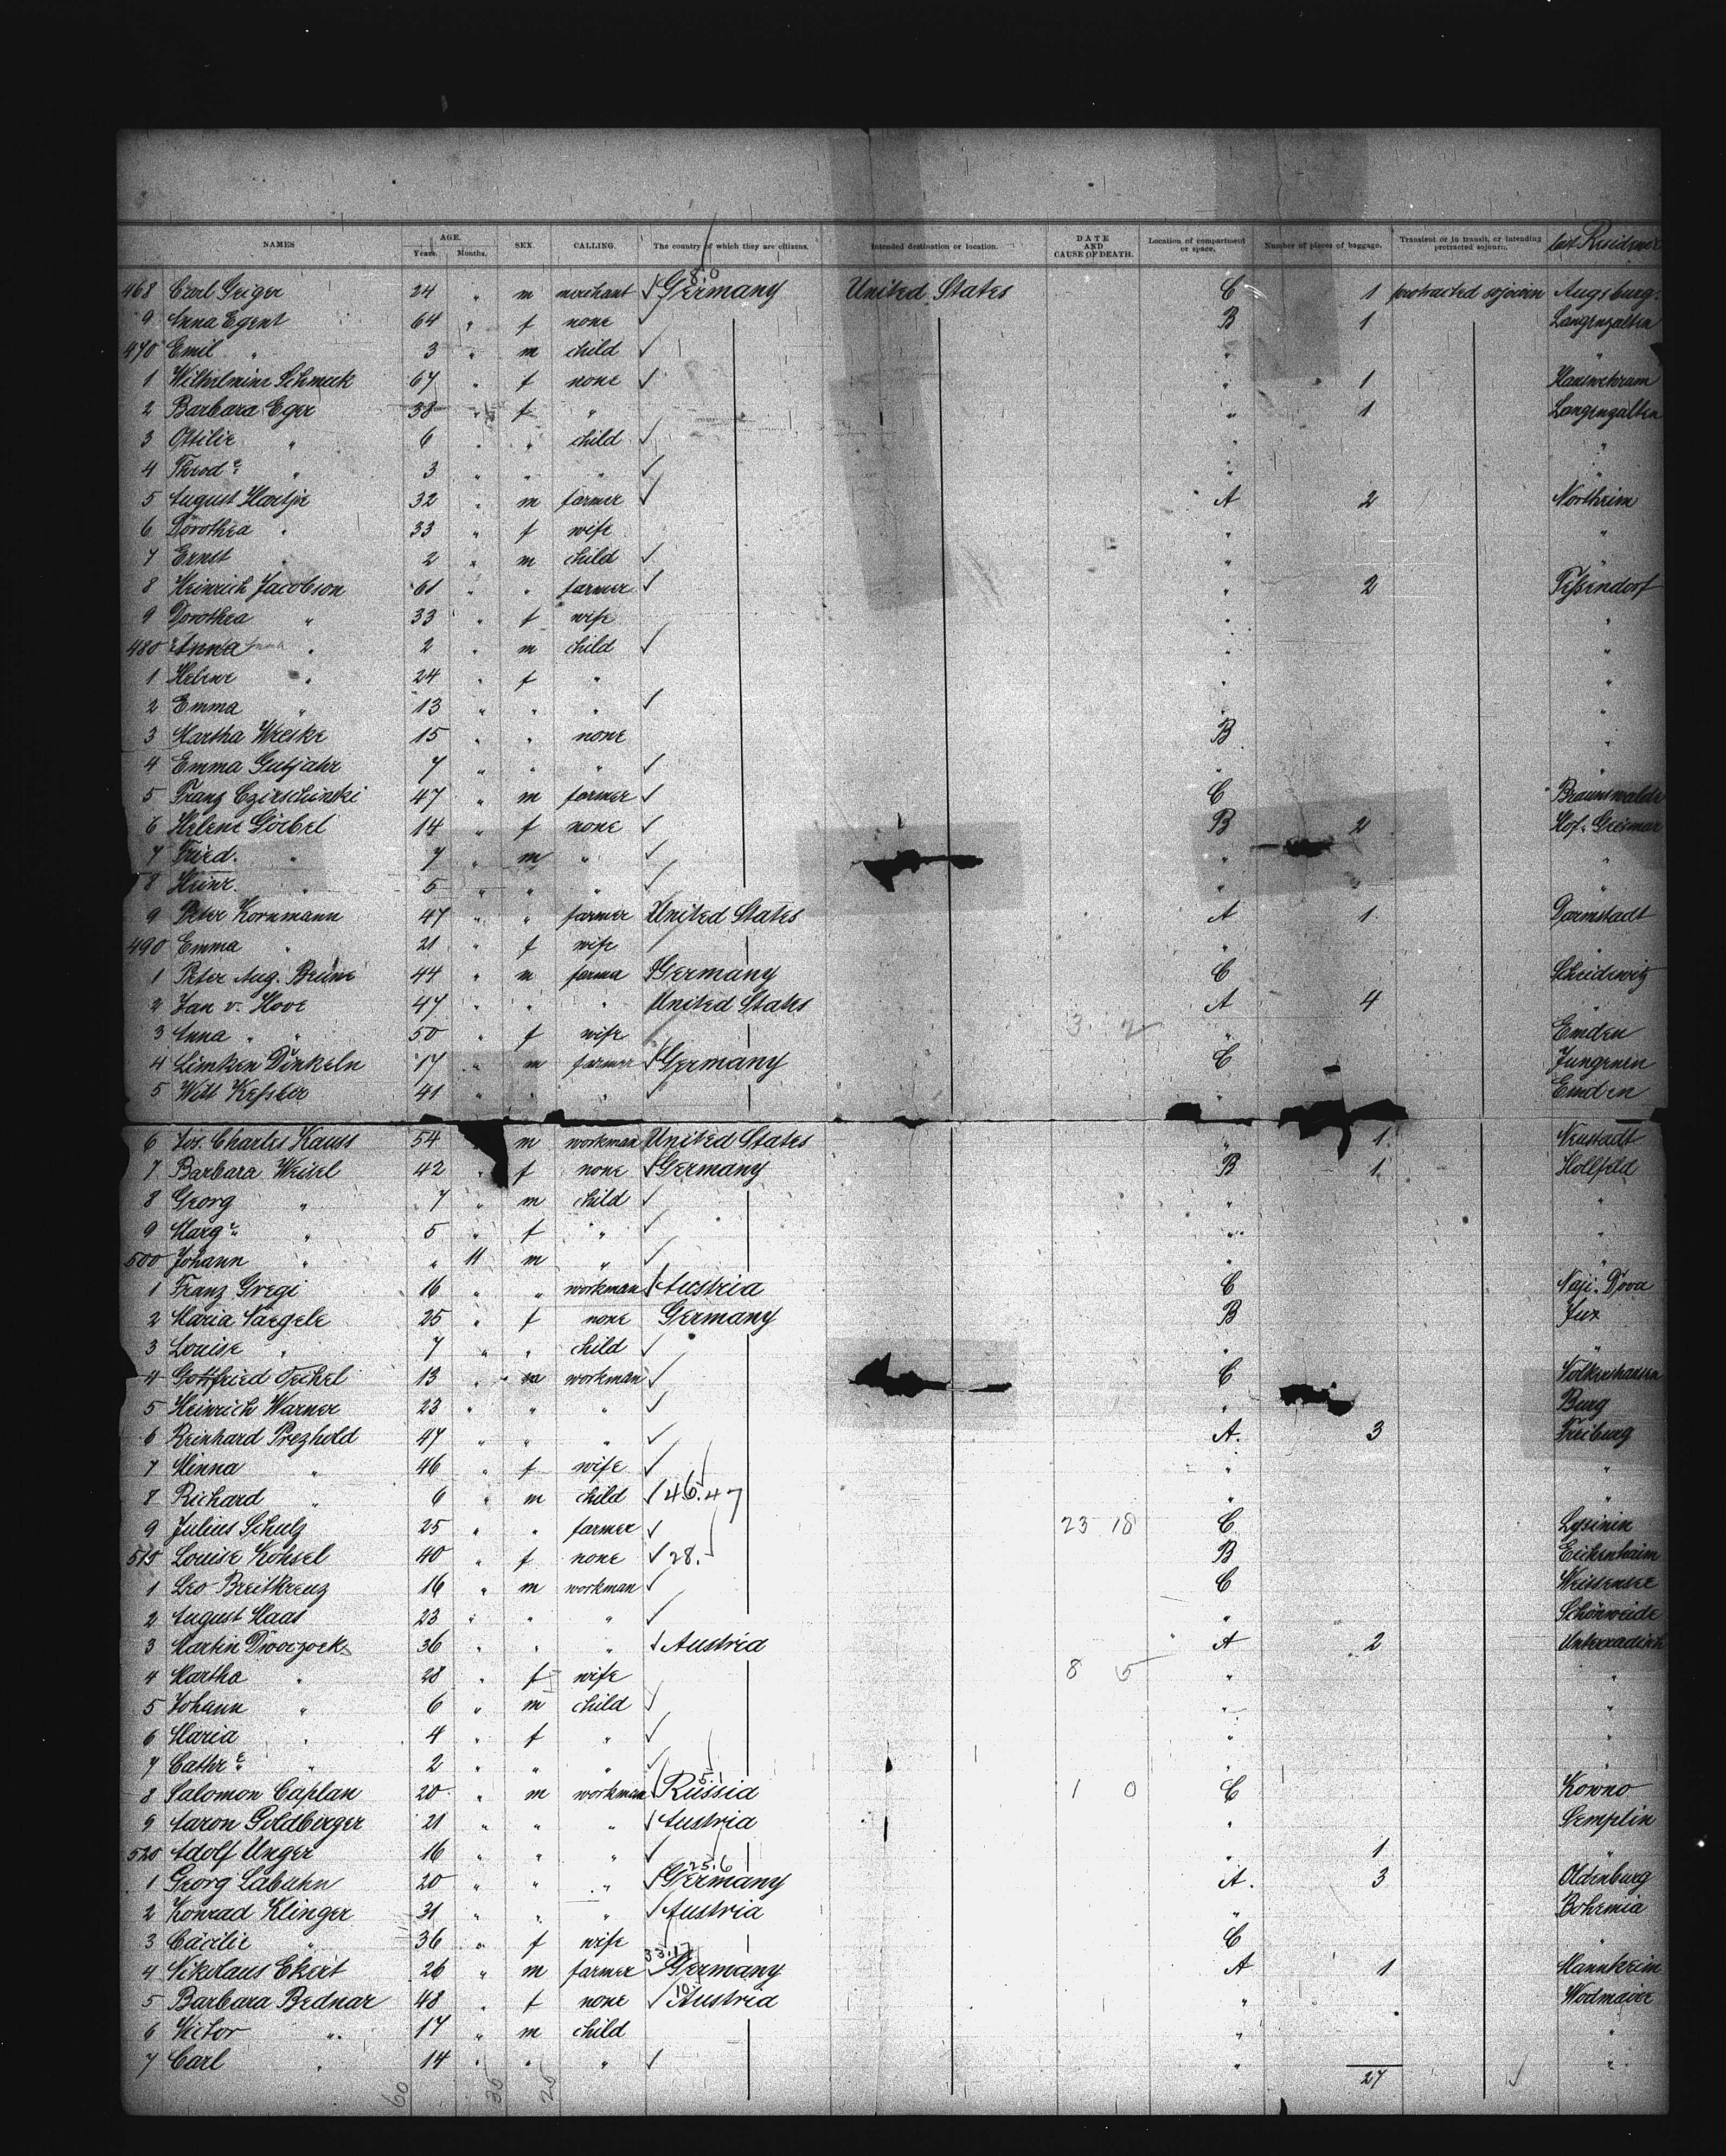 NAMES AGE. Years. Months. SEX. CALLING. The country of which they are citizens. Intended destination or location. DATE AND CAUSE OF DEATH. Location of compartment or space. Number of pieces of baggage. Transient or in transit, or intending protracted sojourn. last Residence
8,0
468 Carl Geiger 24 " m merchant √ Germany United States C 1 protracted sojourn Augsburg
9 Anna Egert 64 " f none √ B 1 Langenzalten
470 Emil " 3 " m child √ " "
1 Wilhelmine Schmuck 67 " f none √ " 1
2 Barbara Eger 38 " f " " 1 Langenzalten
3 Ottilie " 6 " " child √ " "
4 Theode " 3 " " " √ " "
5 August Hartje 32 " m farmer √ A 2 Northeim
6 Dorothea " 33 " f wife " "
7 Ernst " 2 " m child √ " "
8 Heinrich Jacobson 61 " " farmer √ " 2 Feßendorf
9 Dorothea " 33 " f wife " "
480 Anna " 2 " m child √ " "
1 Helene " 24 " f " " "
2 Emma " 13 " " " √ " "
3 Martha Wreske 15 " " none B "
4 Emma Gutjahr 7 " " " √ " "
5 Franz Czirschinski 47 " m farmer √ C Braunswalde
6 Helene Goebel 14 " f none √ B 2 Hof-Geismar
7 Fried. " 7 " m " √ " "
8 Heinr. " 5 " " " √ " "
9 Peter Kornmann 47 " " farmer United States A 1 Darmstadt
490 Emma " 21 " f wife " "
1 Peter Aug. Brüne 44 " m farma √ Germany C Scheidewitz
2 Jan v. Hove 47 " " " United States A 4
3 Anna " " 50 " f wife 3 2 " Emden
4 Limken Dinkeln 17 " m farmer √ Germany C Jungenen
5 Witt Keßler 41 " " " √ " Emden
6 Jos. Charles Kauss 54 " m workman United States " 1 Neustadt
7 Barbara Weisel 42 " f none √ Germany B 1 Hollfeld
8 Georg " 7 " m child √ " "
9 Marg. " 5 " f " √ " "
500 Johann " " 11 m " √ " "
1 Franz Gregi 16 " " workman √ Austria C
2 Maria Naegele 25 " f none Germany B Jux
3 Louise " 7 " " child √ " "
4 Gottfried Teichel 13 " m workman √ C Volkershausen
5 Heinrich Warner 23 " " " √ " Burg
6 Reinhard Prezhold 47 " " " √ A. 3 Freiburg
7 Minna " 46 " f wife √ " "
8 Richard " 6 " m child √ 46.47 " "
9 Julius Schulz 25 " " farmer √ 23 18 C Lysinin
510 Louise Köhsel 40 " f none √ 28. B Eichenhaim
1 Leo Breitkreuz 16 " m workman √ C Weissensee
2 August Haas 23 " " " √ " Schönweide
3 Martin Dworzock 36 " " " √ Austria A 2
4 Martha " 28 " f wife 8 5 " "
5 Johann " 6 " m child √ " "
6 Maria " 4 " f " √ " "
7 Cathr. " 2 " " " √ " "
8 Salomon Caplan 20 " m workman √ Russia 1 0 C Kowno
9 Aaron Goldberger 21 " " " √ Austria " Semplin
520 Adolf Unger 16 " " " √ " 1 "
25.6
1 Georg Labahn 20 " " " √ Germany A. 3 Oldenburg
2 Konrad Klinger 31 " " " √ Austria " Bohemia
3 Cäcilie " 36 " f wife C "
33.17
4 Nikolaus Ekert 26 " m farmer √ Germany A 1 Mannheim
10
5 Barbara Bednar 48 " f none √ Austria " Wodmaier
6 Victor " 17 " m child " "
7 Carl " 14 " " " √ " "
60 36 25 27 √